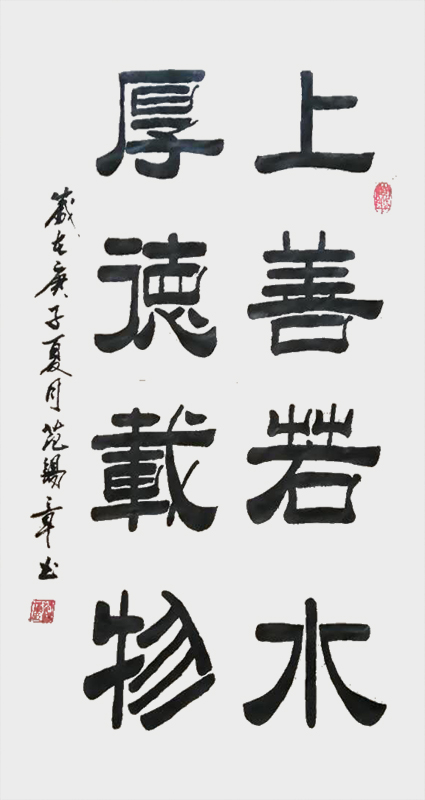 上善若水
厚德載物
歲在庚子夏月范錫章书